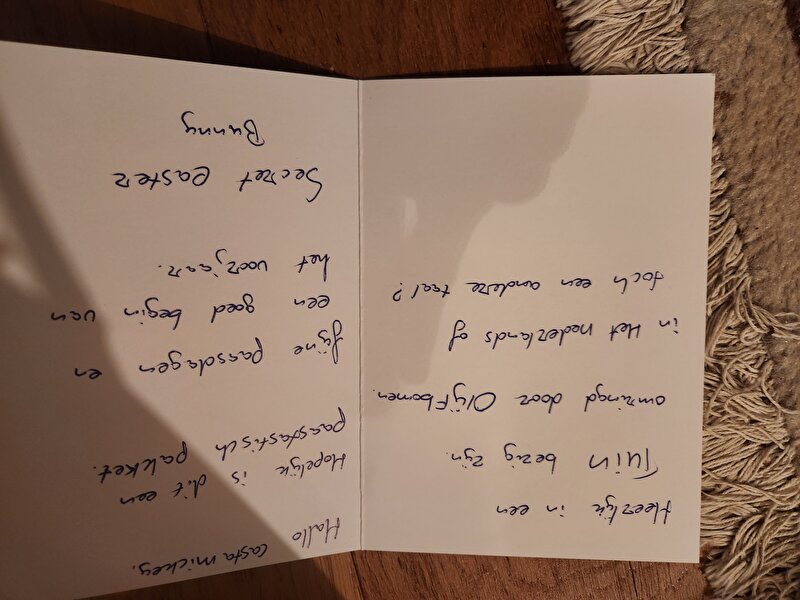 Heerlijk in een
Tuin bezig zijn.
omringd door OlijFbomen.
in Het nederlands of
toch een andere taal?
Hallo casta mickey.
Hopelijk is dit een
paastastisch pakket.
fijne paasdagen en
een goed begin van
het voorjaar.
Secret easter
Bunny